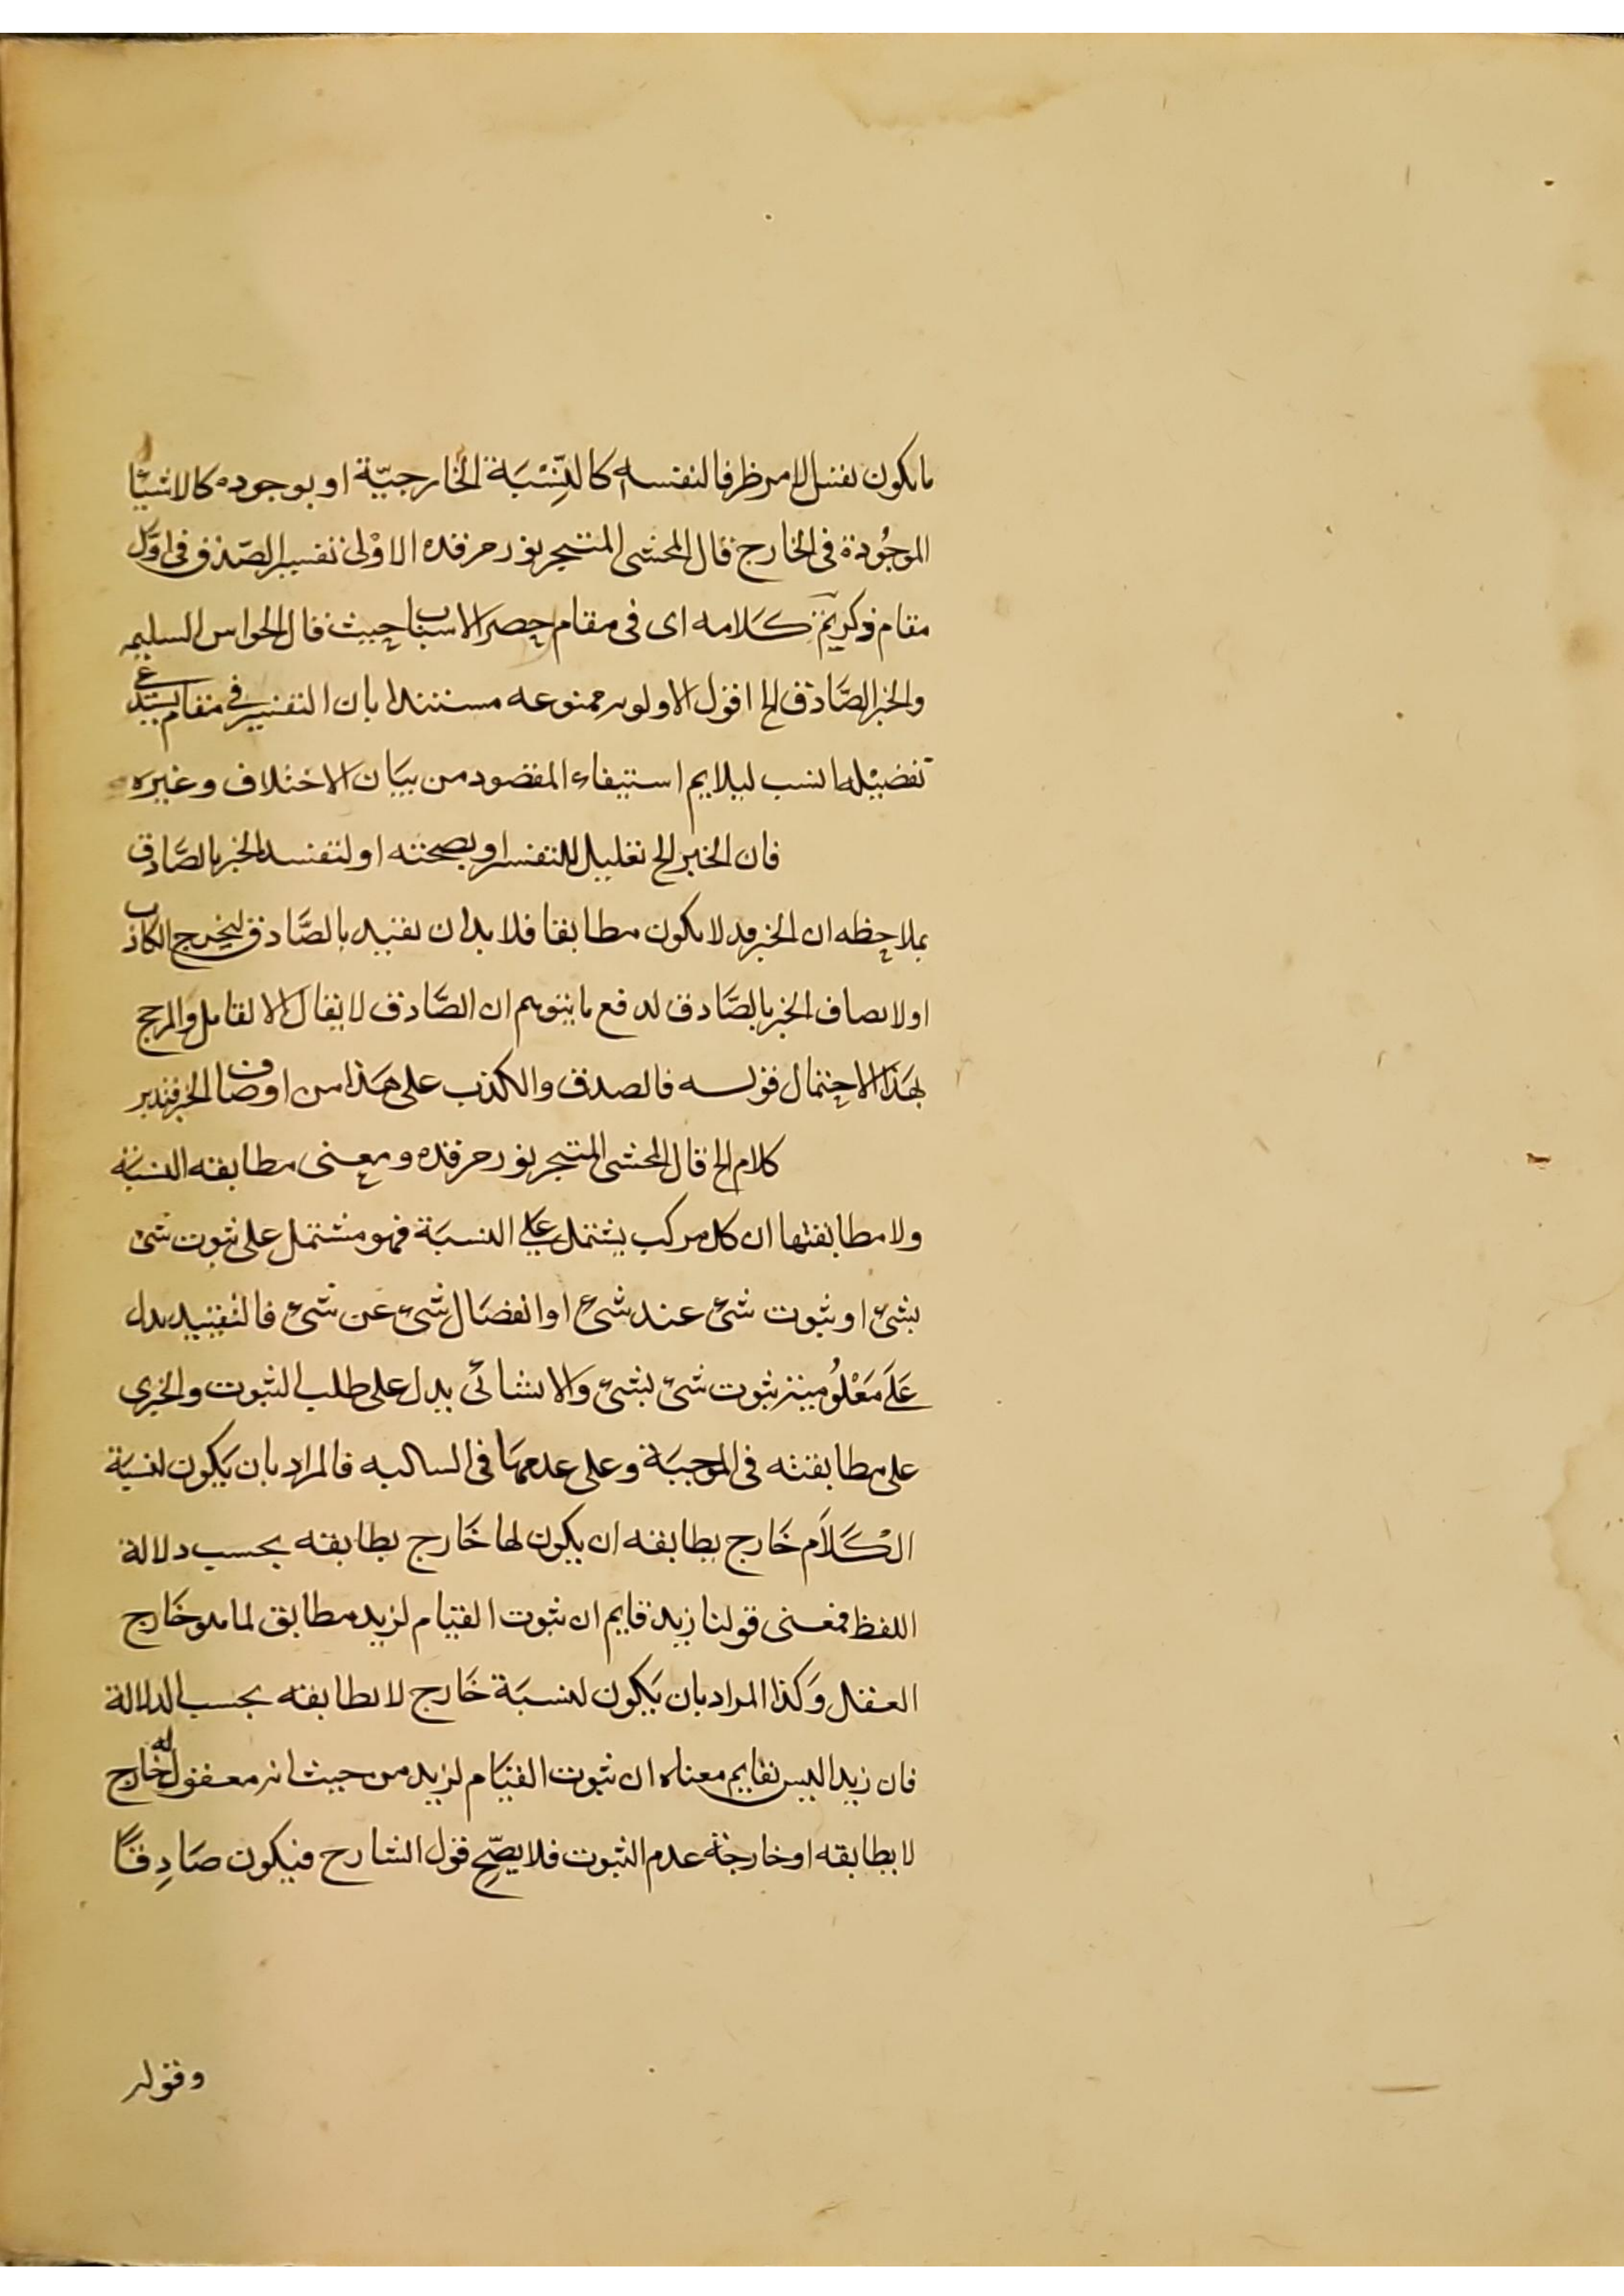 ما يكون نفس الامر ظرفا لنفسه كالنِّسْبَة الخارجيّة او بوجوده كالاشيا
الموجُودة في الخارج قال المحشى المتبحر نور مرقده الاوْلى تفسير الصّدق في اوّل
مقام ذكر ثمّ كَلامه اى فى مقام حصر الاسباب حيث قال الحواس السليمه
والخبر الصَّادق الخ اقول الاولويه ممنوعه مستندا بان التفسير في مقام يستدعى
تفصيلها انسب ليلايم استيفاء المقصود من بيَان الاختلاف وغيره
فان الخبر الخ تعليل للتفسير او بصحته او لتقيد الخبر بالصَّادق
بملاحظه ان الخبر قد لا يكون مطابقا فلا بد ان يقيد بالصَّادق ليخرج الكاذب
او لاتصاف الخبر بالصَّادق لدفع ما يتوهم ان الصَّادق لا يقال الا لقايل والمرجح
بهَذا الاحتمال قوله فالصدق والكذب على هَذا من اوصاف الخبر فتدبر
كلام الخ قال المحشى المتبحر نور مرقده ومعنى مطابقه النسبَة
ولا مطابقتها ان كل مركب يشتمل على النسبَة فهو مشتمل على ثبوت شئ
بشئ او ثبوت شئ عند شئ او انفصَال شئ عن شئ فالتقييد يدل
عَلَى مَعْلُومية ثبوت شئ بشئ وَالانشائى يدل على طلب الثبوت والخبرى
على مطابقته فى الموجبَة وعلى عدمهَا فى السالبه فالمراد بان يَكون لنسبَة
الْكَلَام خَارج يطابقه ان يكون لها خَارج يطابقه بحسب دلالة
اللفظ فمعنى قولنا زيد قايم ان ثبوت القيَام لزيد مطابق لما هو خَارج
العقل وَكذا المراد بان يَكون لنسبَة خَارج لا يطابقه بحسب الدلالة
فان زيدا ليس بقايم معناه ان ثبوت القيَام لزيد من حيث انه معقول له خَارج
لا يطابقه او خارجة عدم الثبوت فلا يصّح قول الشارح فيكون صَادِقًا
وقوله